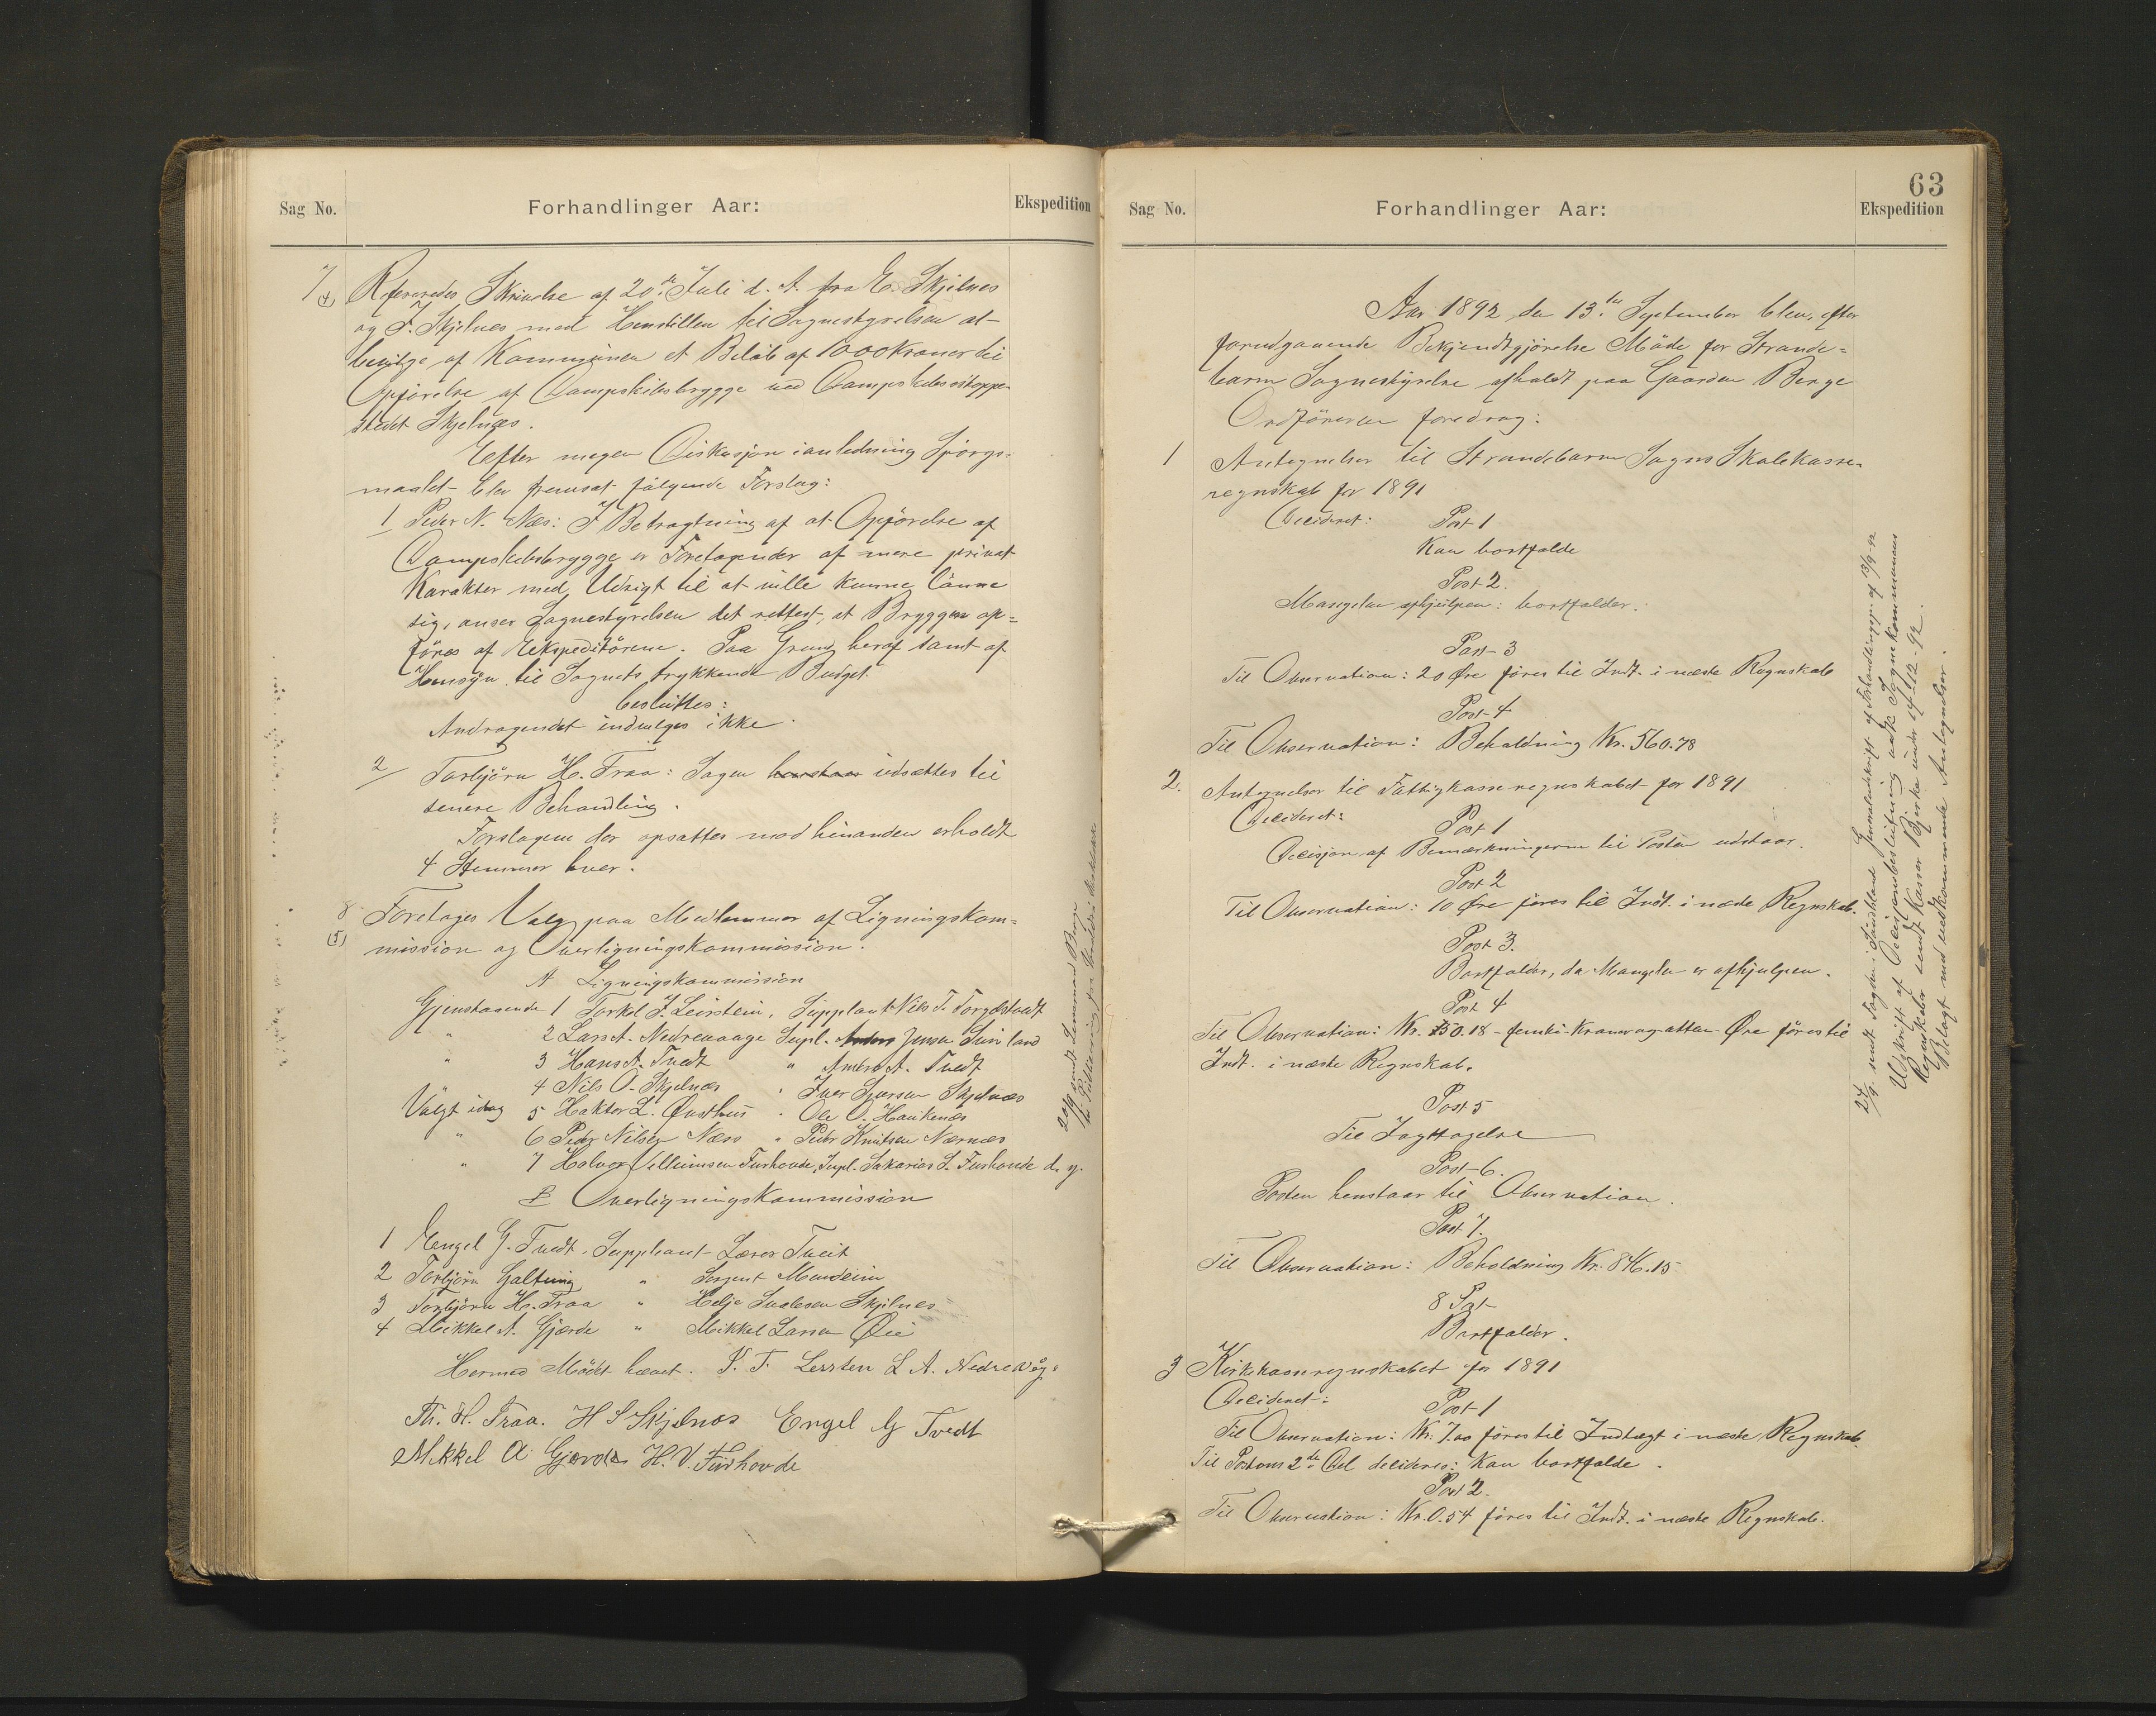 Sag No.
Forhandlinger Aar:
Ekspedition
7
(4)
Refereredes Skrivelse af 20de Juli d. A. fra E. Skjelnes
og I. Skjelnes med Henstillen til Sognestyrelsen at
bevilge af Kommunen et Beløb af 1000 Kroner til
Opførelse af Dampskibsbrygge ved Dampskibsstoppe-
stedet Skjelnæs.
Efter megen Diskusjon i anledning Spørgs-
maalet blev fremsat følgende Forslag:
1 Peder N. Næs: I Betragtning af at Opførelse af
Dampskibsbrygge er Foretagender af mere privat
Karakter med Udsigt til at ville kunne lønne
sig, anser Sognestyrelsen det rettest, at Bryggen op=
føres af Ekspeditørerne. Paa Grund heraf samt af
Hensyn til Sognets trykkende Budget
besluttes:
Andragendet indvilges ikke.
2 Torbjørn H. Traa: Sagen henstaar udsættes til
senere Behandling.
Forslagene der opsattes mod hinanden erholdt
4 Stemmer hver.
8
(5)
Foretoges Valg paa Medlemmer af Ligningskom=
mission og Overligningskommission.
A Ligningskommission
Gjenstaaende 1 Torkel J. Leirstein, Supplant Nils T. Torgilstvedt
" 2 Lars A. Nedrevaage Supl. Anders Jensen
" 3 Hans A. Tvedt " Anders A. Tvedt
4 Nils O. Skjelnæs " Iver Iversen Skjelnæs
Valgt idag 5 Haktor L. Øvsthus " Ole O. Haukenæs
" 6 Peder Nilsen Næss " Peder Knutsen Nærnæs
" 7 Halvor Villumsen Fushovde, Supl. Sakarias S. Fushovde d. y.
B Overligningskommission
1 Engel G. Tvedt, Suppleant Lærer Tveit
2 Torbjørn Galtung " Sergent Mundeim
3 Torbjørn H. Traa " Helje Skjelnes
4 Mikkel A. Gjærde " Mikkel Larsen Øie
Hermed Mødet hævet. T. T. Lersten L A. Nedrevåge
Th. H. Traa. H S Skjelnos Engel G Tvedt
Mikkel A Gjerde H. V. Fushovde
20/9 sendt Lensmand Berge
Sag No.
Forhandlinger Aar:
63
Ekspedition
Aar 1892 den 13de September blev, efter
forudgaaende Bekjendtgjørelse Møde for Strande=
barm Sognestyrelse afholdt paa Gaarden Berge
Ordføreren foredrog:
1 Antegnelser til Strandebarm Sogns Skolekasse-
regnskab for 1891
Decideret: Post 1
Kan bortfalde
Post 2.
Mangelen afhjulpen: bortfalder.
Post 3
Til Observation: 20 Øre føres til Indt. i næste Regnskab
Post 4
Til Observation: Beholdning Kr. 560.78
2. Antegnelser til Fattigkasseregnskabet for 1891
Decideret:
Post 1
Decisjon af Bemærkningerne til Posten udstaar.
Post 2
Til Observation: 10 Øre føres til Indt. i næste Regnskab.
Post 3.
Bortfalder, da Mangelen er afhjulpen.
Post 4
Til Observation: Kr. 50.18 - femti-Kroner og-atten-Øre føres til
Indt. i næste Regnskab.
Post 5
Til Iagttagelse
Post 6.
Posten henstaar til Observation.
Post 7.
Til Observation: Beholdning Kr. 846.15
8 Post
Bortfalder.
3 Kirkekasseregnskabet for 1891
Decideret:
Post 1
Til Observation: Kr. 7.00 føres til Indtægt i næste Regnskab.
Til Postens 2de Del decideres: Kan bortfalde.
Post 2.
Til Observation: Kr. 0.54 føres til Indt. i næste Regnskab.
27/9 sendt Fogden i Søndhordland Generaludskrift af Forhandlinger af 13/9-92
Udskrift af Decisionsbeslutning vedk. Sognekommunens
Regnskaber sendt Kasser Bjerke under 14-12-92.
Bilagt med vedkommende Antegnelser.